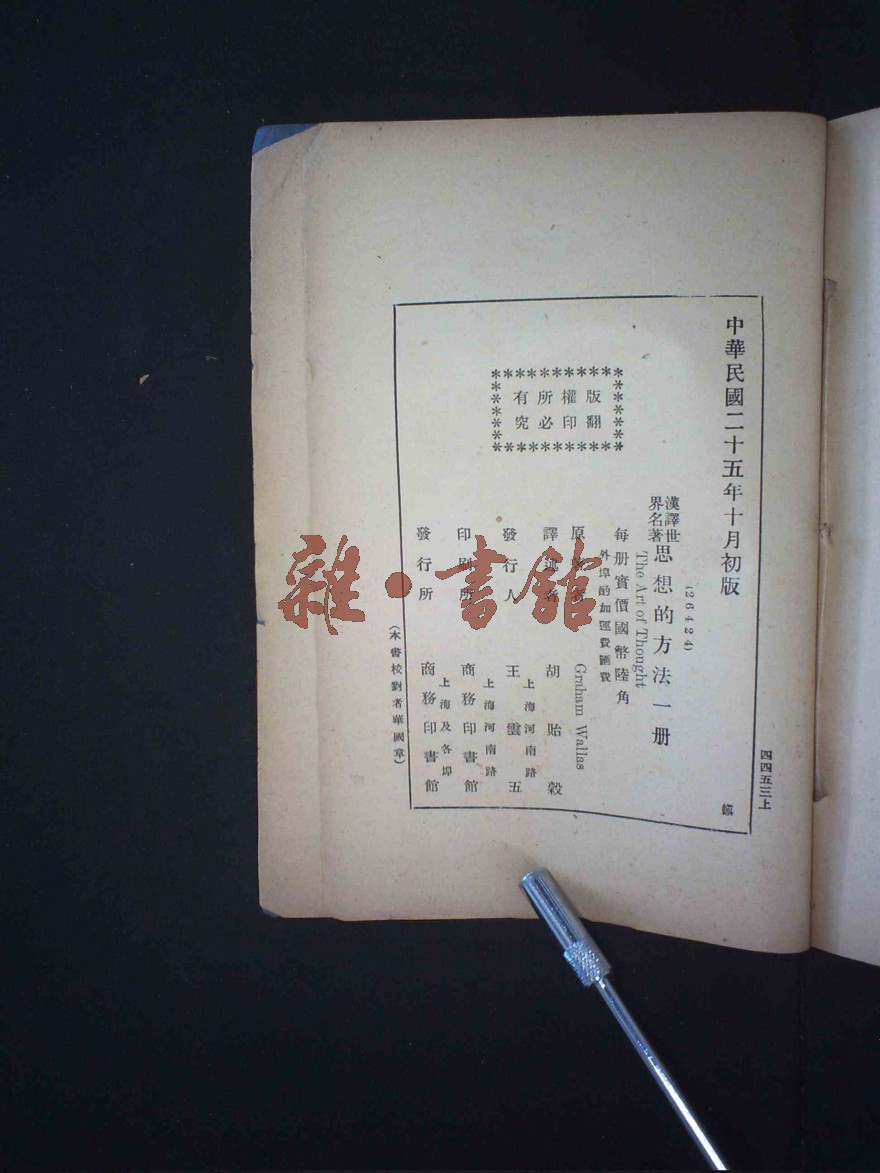 四四五三上
中華民國二十五年十月初版
(26424)
漢譯世界名著 思想的方法一册
The Art of Thought
每册實價國幣陸角
外埠酌加運費匯費
版權所有
翻印必究
原著者 Graham Wallas
譯述者 胡貽穀
發行人 王雲五
上海河南路
印刷所 商務印書館
上海河南路
發行所 商務印書館
上海及各埠
(本書校對者華國章)
雜·書館